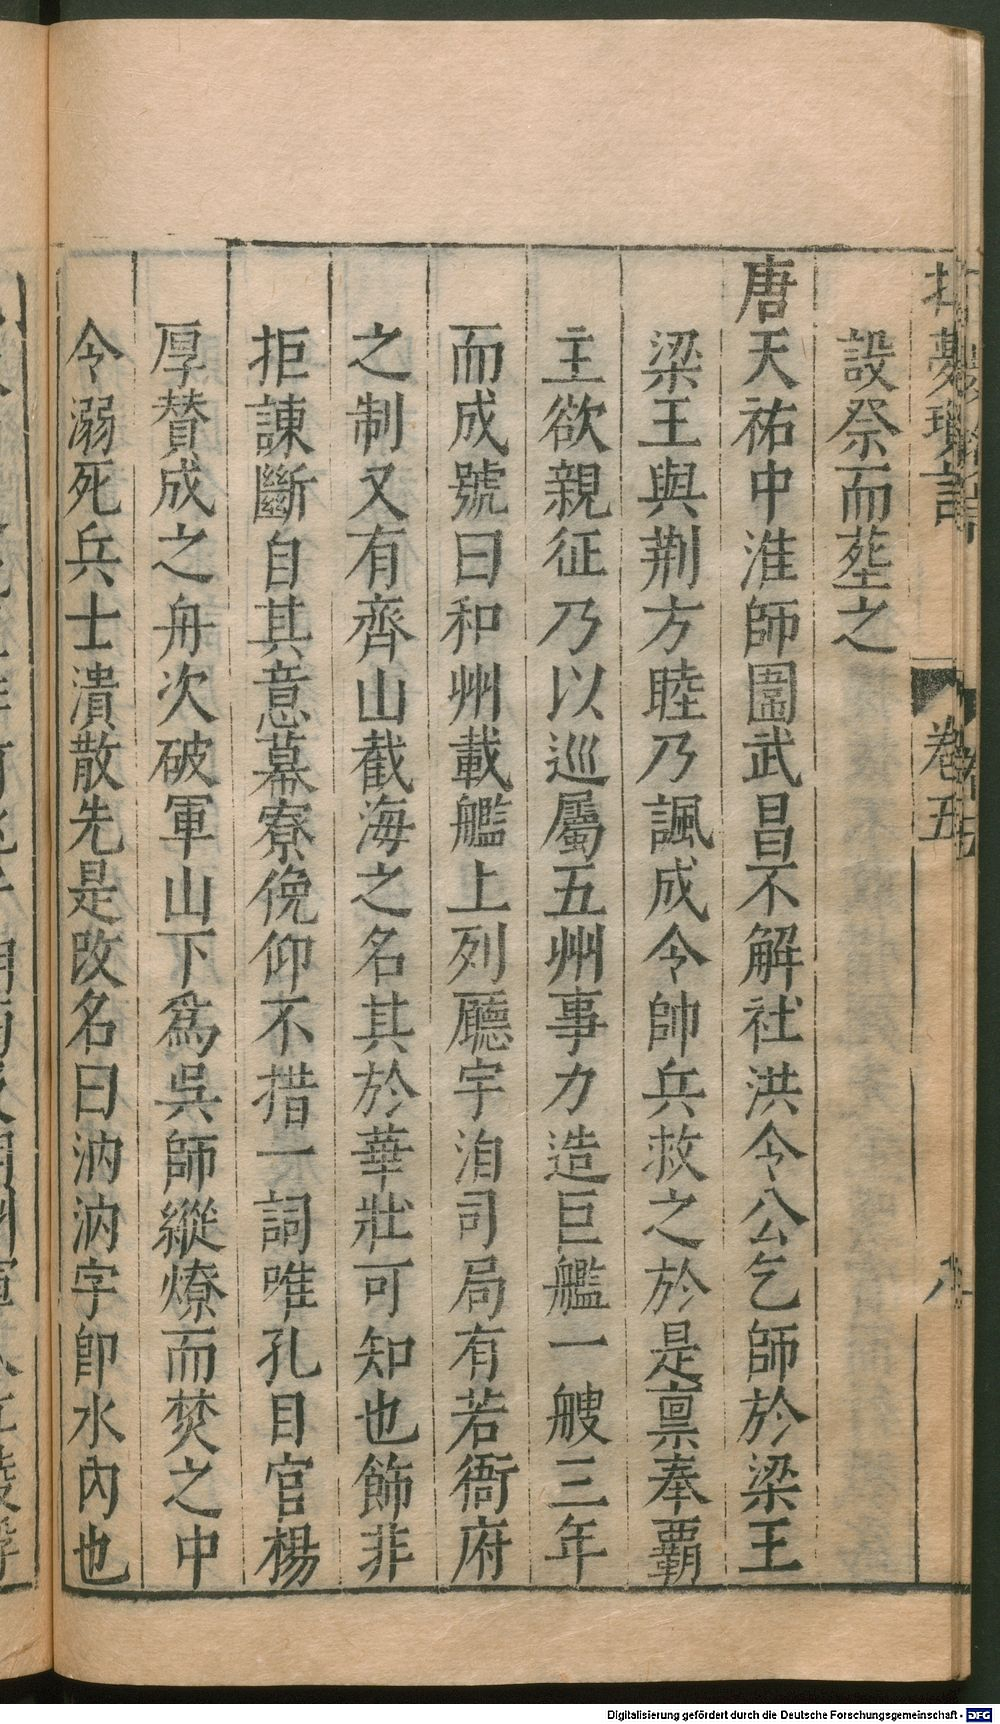 北夢瑣言 卷五
設祭而塟之
唐天祐中淮師圍武昌不解社洪令公乞師於梁王
梁王與荆方睦乃諷成令帥兵救之於是禀奉霸
主欲親征乃以巡屬五州事力造巨艦一艘三年
而成號曰和州載艦上列廳宇洎司局有若衙府
之制又有齊山截海之名其於華壯可知也飾非
拒諫斷自其意幕寮俛仰不措一詞唯孔目官楊
厚贊成之舟次破軍山下爲吳師縱燎而焚之中
令溺死兵士潰散先是改名曰汭汭字卽水內也
Digitalisierung gefördert durch die Deutsche Forschungsgemeinschaft - DFG